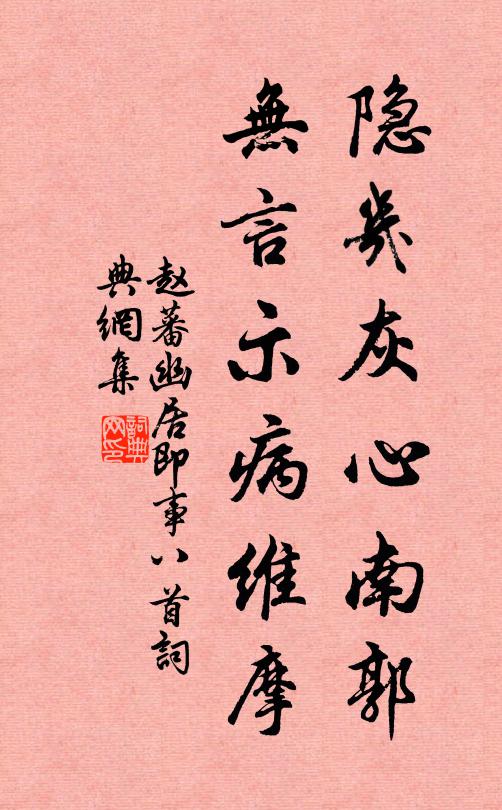 隐几灰心南郭
無言示病维摩
赵蕃幽居即事八首詞
典網集
詞典网印